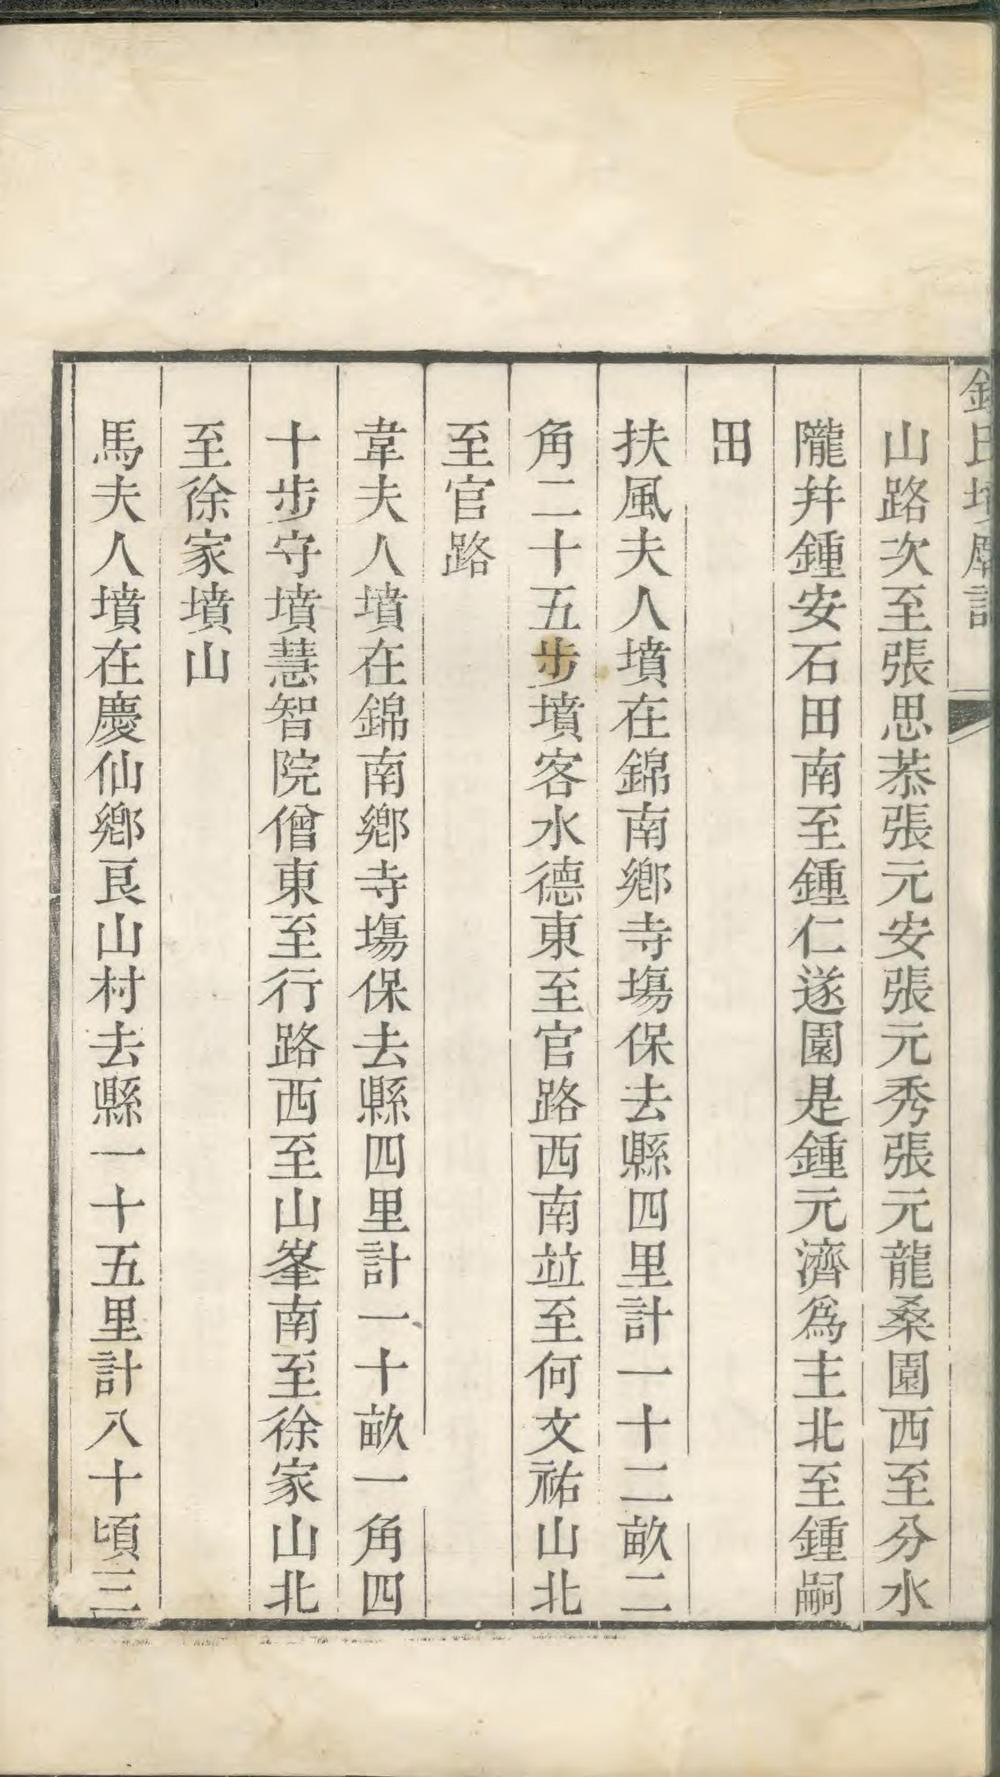 錢氏墳廟記
山路次至張思恭張元安張元秀張元龍桑園西至分水
隴幷鍾安石田南至鍾仁遂園是鍾元濟爲主北至鍾嗣
田
扶風夫人墳在錦南鄉寺塲保去縣四里計一十二畝二
角二十五步墳客水德東至官路西南並至何文祐山北
至官路
韋夫人墳在錦南鄉寺塲保去縣四里計一十畝一角四
十步守墳慧智院僧東至行路西至山峯南至徐家山北
至徐家墳山
馬夫人墳在慶仙鄉良山村去縣一十五里計八十頃三